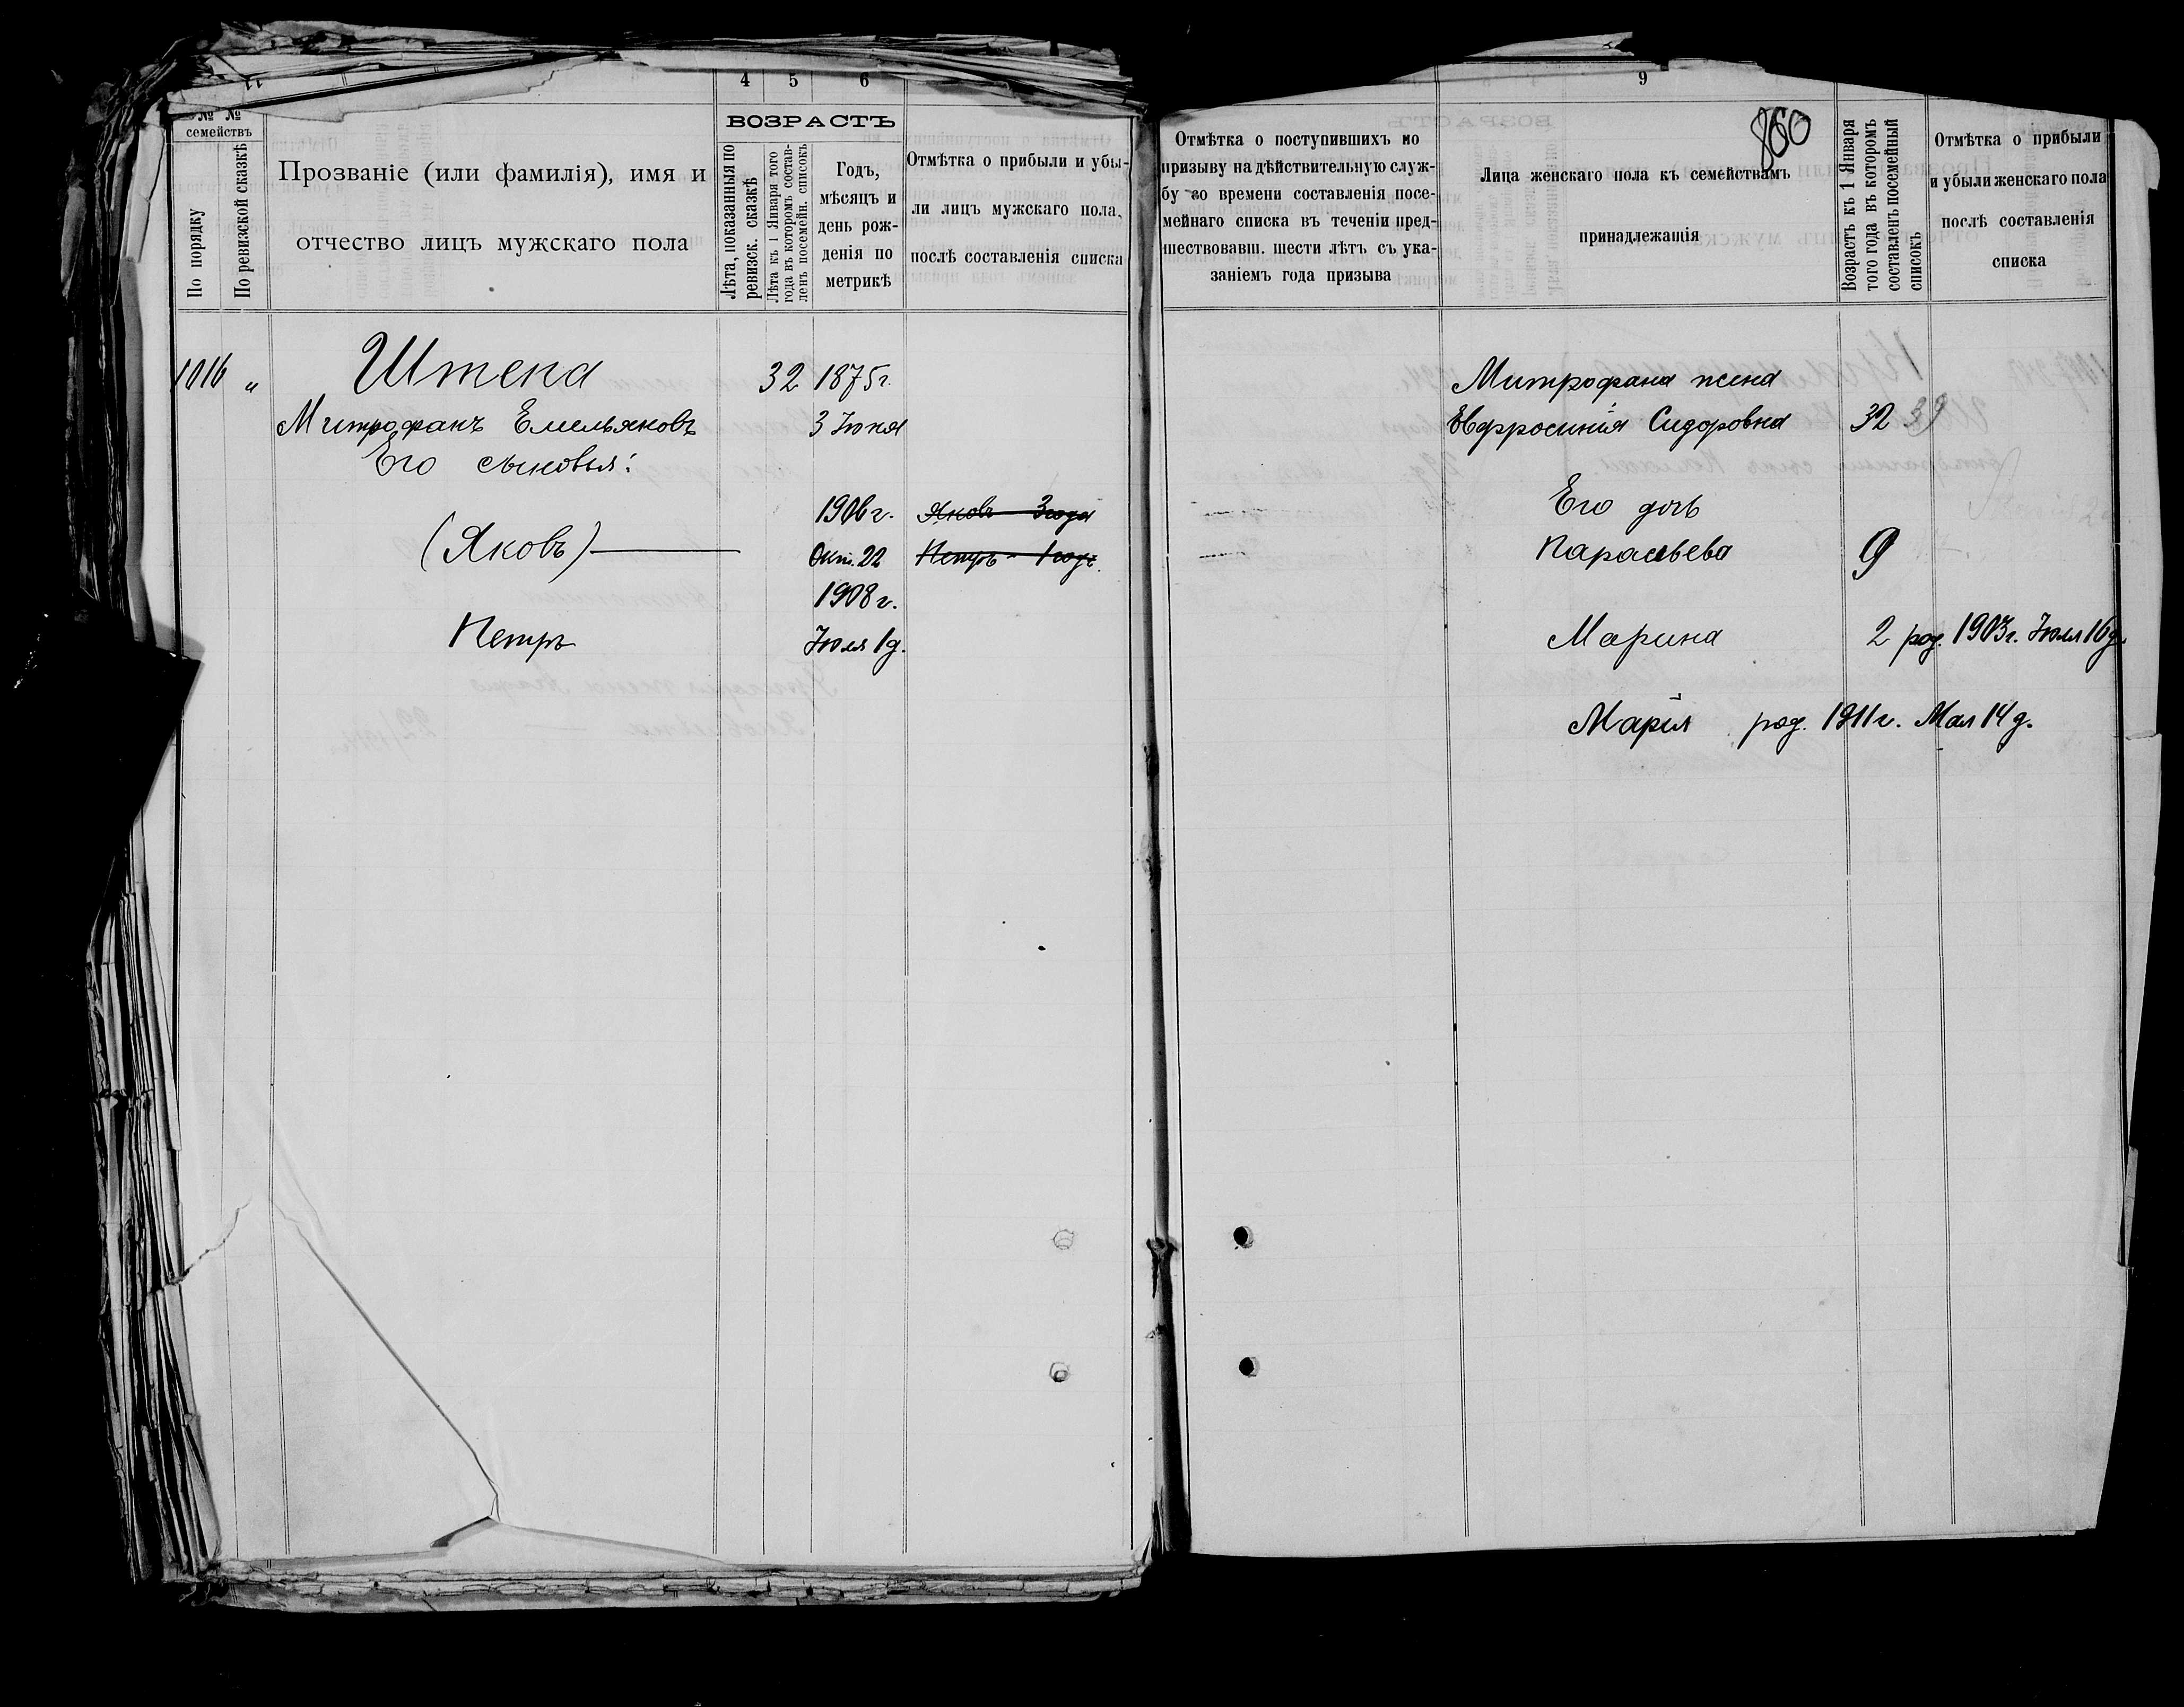 4 5 6
№ № семействъ
По порядку
По ревизской сказкѣ
Прозваніе (или фамилія), имя и
отчество лицъ мужскаго пола
ВОЗРАСТЪ
Лѣта, показанныя по
ревизск. сказкѣ
Лѣта къ 1 Января того
года въ которомъ состав-
ленъ посемейн. списокъ
Годъ,
мѣсяцъ и
день рож-
денія по
метрикѣ
Отмѣтка о прибыли и убы-
ли лицъ мужскаго пола,
послѣ составленія списка
1016 „ Штепа 32 1875 г.
Митрофанъ Емельяновъ 3 Іюня
Его сыновья:
1906 г. Яковъ 3 года
(Яковъ) Окт. 22 Петръ - 1 годъ.
1908 г.
Петръ Іюля 1 д.
9
860
Отмѣтка о поступившихъ по
призыву на дѣйствительную служ-
бу во времени составленія посе-
мейнаго списка въ теченіи пред-
шествовавш. шести лѣтъ съ ука-
заніемъ года призыва
Лица женскаго пола къ семействамъ
принадлежащія
Возрастъ къ 1 Января
того года въ которомъ
составленъ посемейный
списокъ
Отмѣтка о прибыли
и убыли женскаго пола
послѣ составленія
списка
Митрофана жена
Евфросинія Сидоровна 32 39
Его дочь
Параскева 9
Марина 2 род. 1903 г. Іюля 16 д.
Марія род. 1911 г. Мая 14 д.